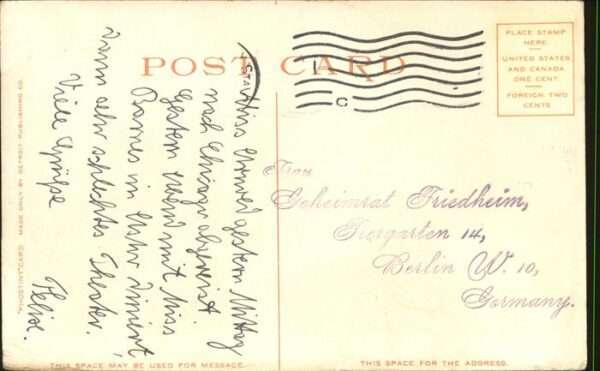 POST CARD
PLACE STAMP
HERE
UNITED STATES
AND CANADA
ONE CENT
FOREIGN TWO
CENTS
C
Miss gestern Mittag
nach Chicago abgereist
Gestern Abend mit Miss
Barnes in
dann sehr schlechtes Theater.
Viele Grüße
Frau
Geheimrat Friedheim,
Tiergarten 14,
Berlin W. 10,
Germany.
"PHOSTINT" CARD MADE ONLY BY DETROIT PUBLISHING CO.
THIS SPACE MAY BE USED FOR MESSAGE.
THIS SPACE FOR THE ADDRESS.